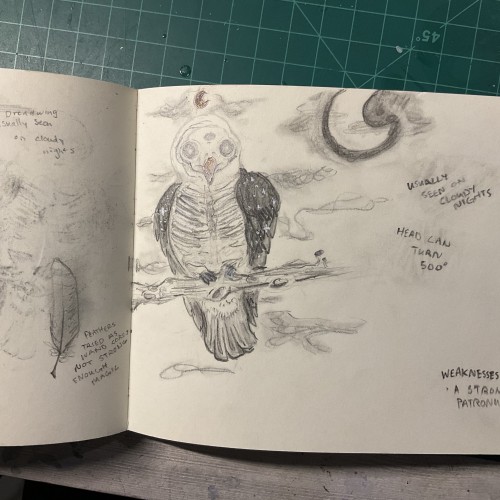 usually seen
on cloudy
nights
FEATHERS
TRIED AS
WAND CORES
NOT STRONG
ENOUGH
FRAGILE
USUALLY
SEEN ON
CLOUDY
NIGHTS
HEAD CAN
TURN
500°
WEAKNESSES
· A STRON
PATRONU
45°